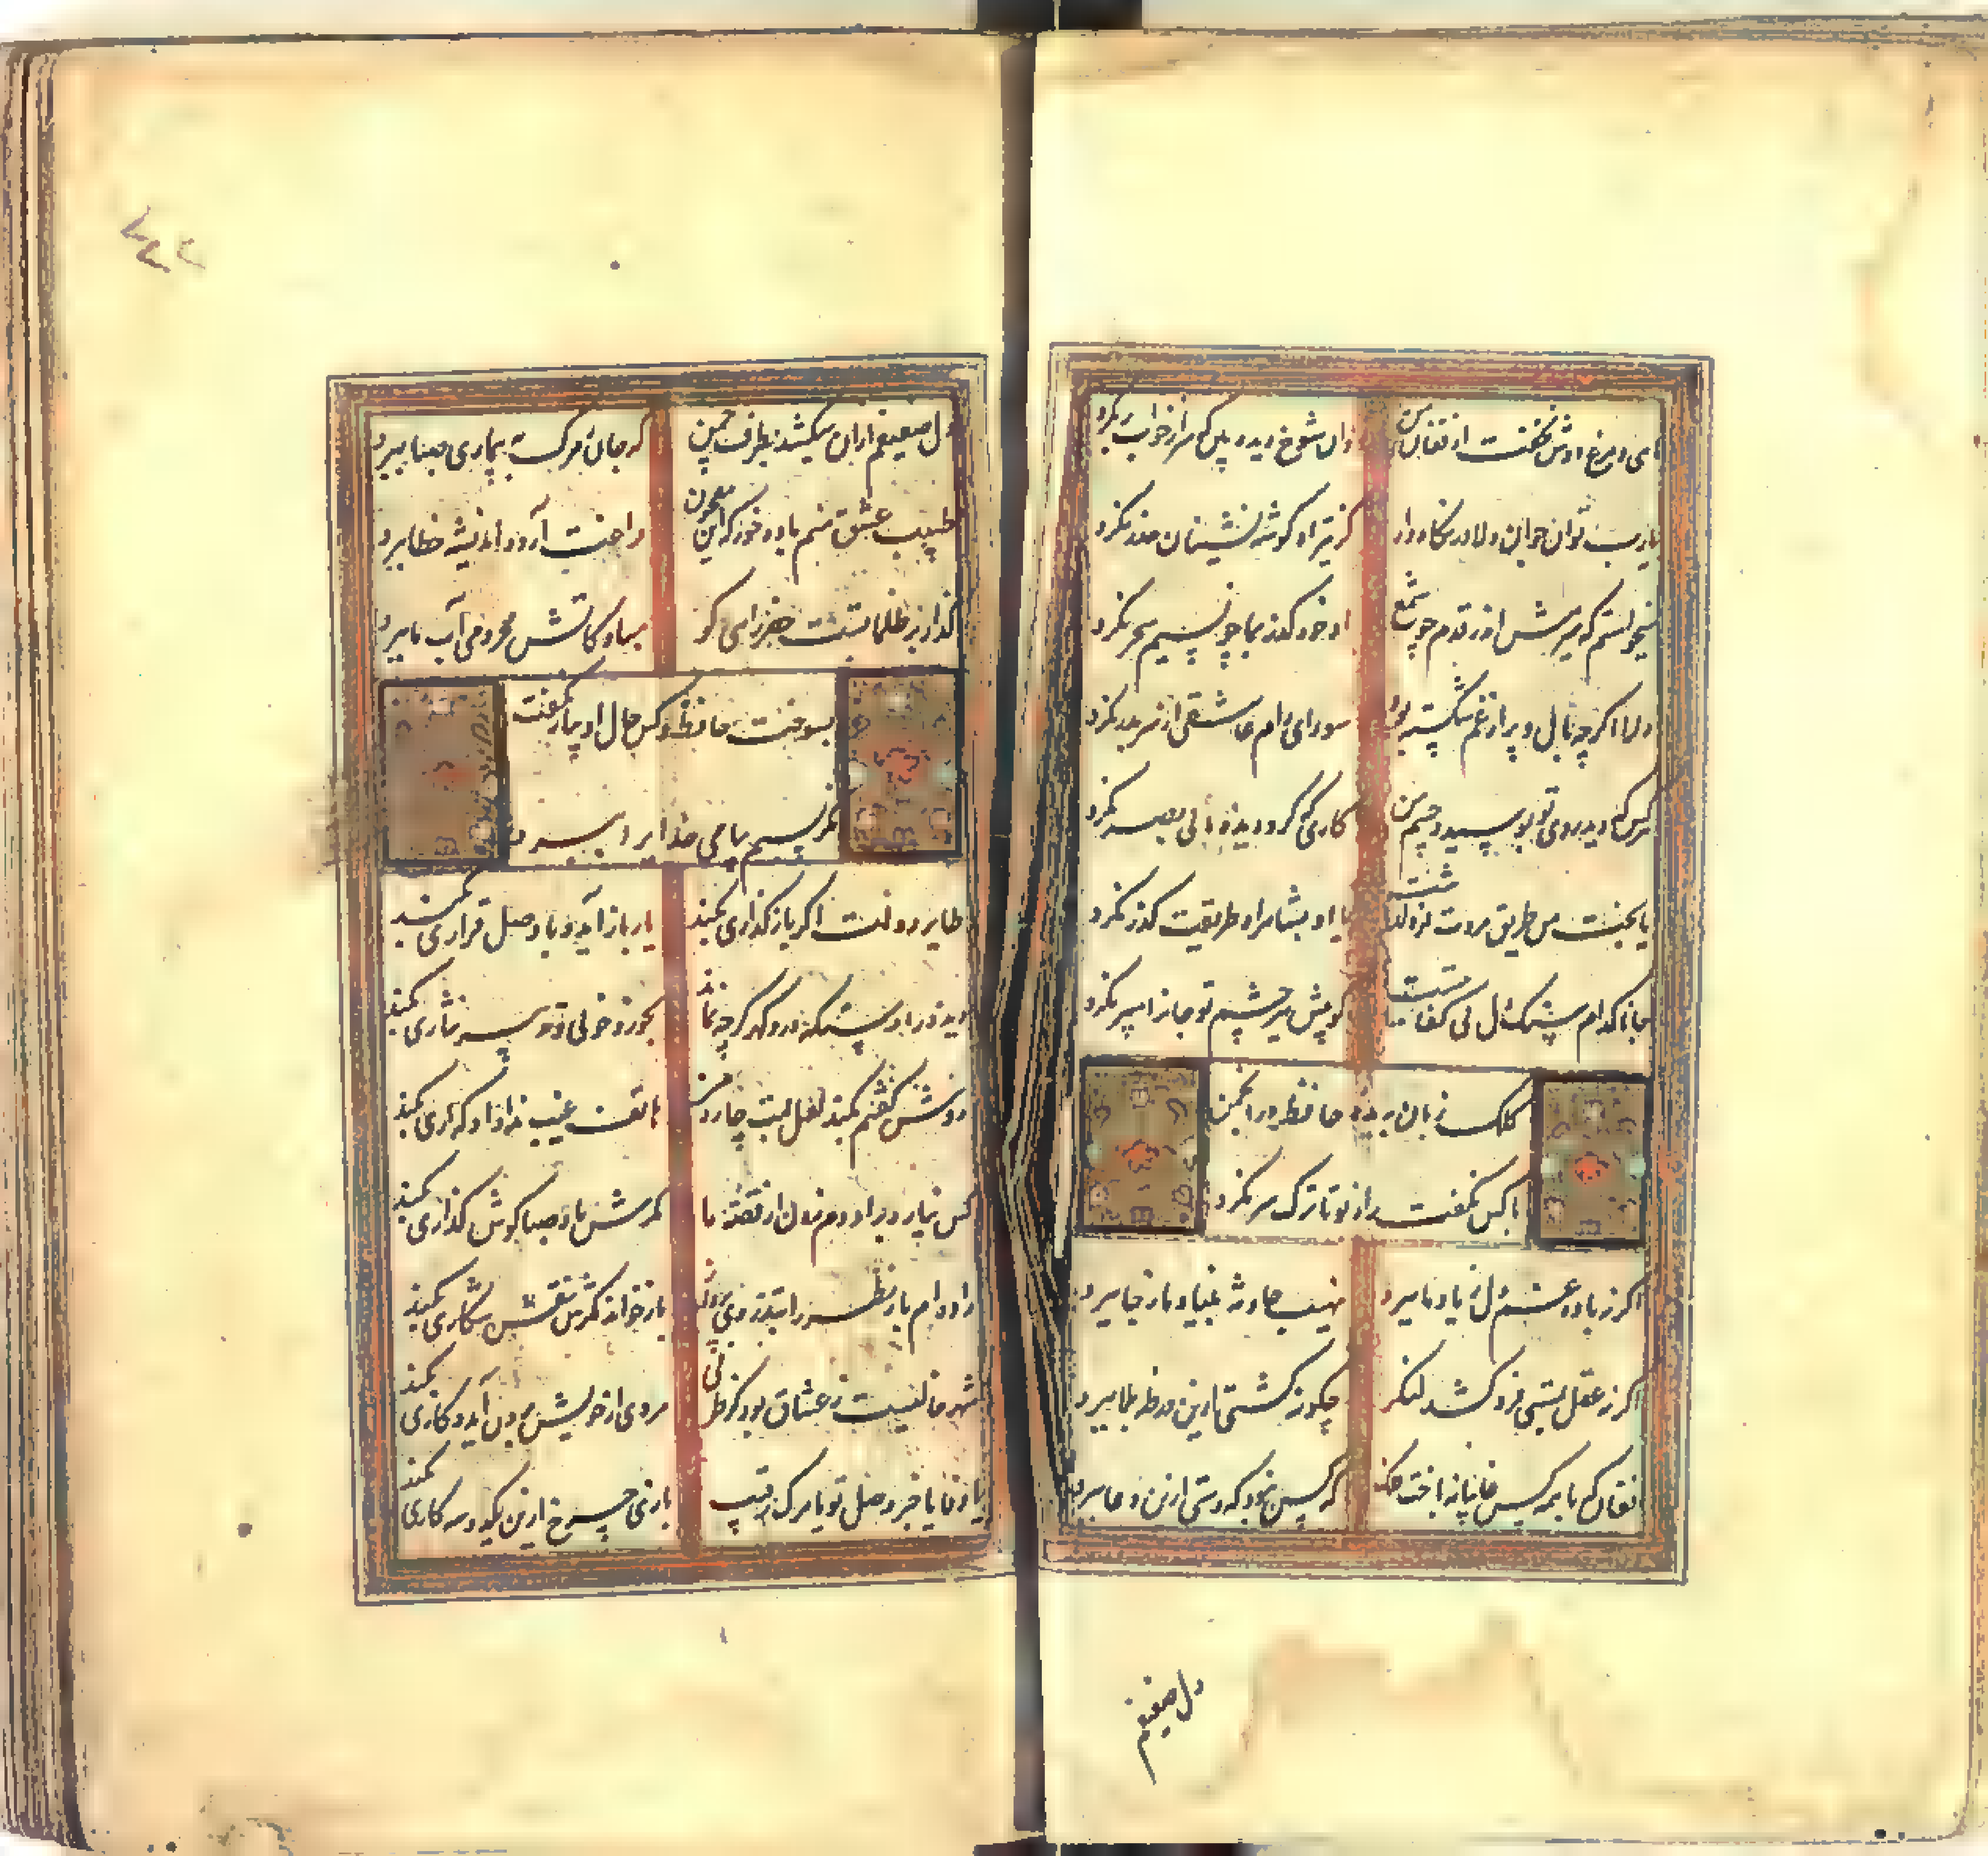 ماهی و مرغ دوش نخفت از فغان من وان شوخ دیده بین که سر از خواب بر نکرد
یارب تو آن جوان دلاور نگاه دار کز تیر آه گوشه نشینان حذر نکرد
میخواستم که میرمش اندر قدم چو شمع او خود گذر بما چو نسیم سحر نکرد
دلرا اگرچه بال و پر از غم شکسته بود سودای دام عاشقی از سر بدر نکرد
هرکس که دید روی تو بوسید چشم من کاری که کرد دیده ما بی بصر نکرد
یا بخت من طریق مروت فرو گذاشت یا او بشاهراه طریقت گذر نکرد
جانا کدام سنگ دل بی کفایتست کو پیش تیر چشم تو جانرا سپر نکرد
کلک زبان بریده حافظ در انجمن
با کس نگفت راز تو تا ترک سر نکرد
اگر نه باده غم دل ز یاد ما ببرد نهیب حادثه بنیاد ما ز جا ببرد
اگر نه عقل بمستی فرو کشد لنگر چگونه کشتی ازین ورطه بلا ببرد
فغان که با همه کس غایبانه باخت فلک که کس نبود که دستی ازین دغا ببرد
دل ضعیفم
دل ضعیفم ازان میکشد بطرف چمن که جان ز مرگ به بیماری صبا ببرد
طبیب عشق منم باده خور که این معجون فراغت آرد و اندیشه خطا ببرد
گذار بر ظلماتست خضر راهی کو مباد کاتش محرومی آب ما ببرد
بسوخت حافظ و کس حال او بیار نگفت
مگر نسیم پیامی خدایرا ببرد
طایر دولت اگر باز گذاری بکند یار باز آید و با وصل قراری بکند
دیده را دستگه در و گهر گرچه نماند بخورد خونی و تدبیر نثاری بکند
دوش گفتم بکند لعل لبت چاره من هاتف غیب ندا داد که آری بکند
کس نیارد بر او دم زدن از قصه ما مگرش باد صبا گوش گذاری بکند
داده ام باز نظر را بتذروی پرواز باز خواند مگرش نقش و شکاری بکند
شهر خالیست ز عشاق بود کز طرفی مردی از خویش برون آید و کاری بکند
یا وفا یا خبر وصل تو یا مرگ رقیب بازی چرخ ازین یکدو سه کاری بکند